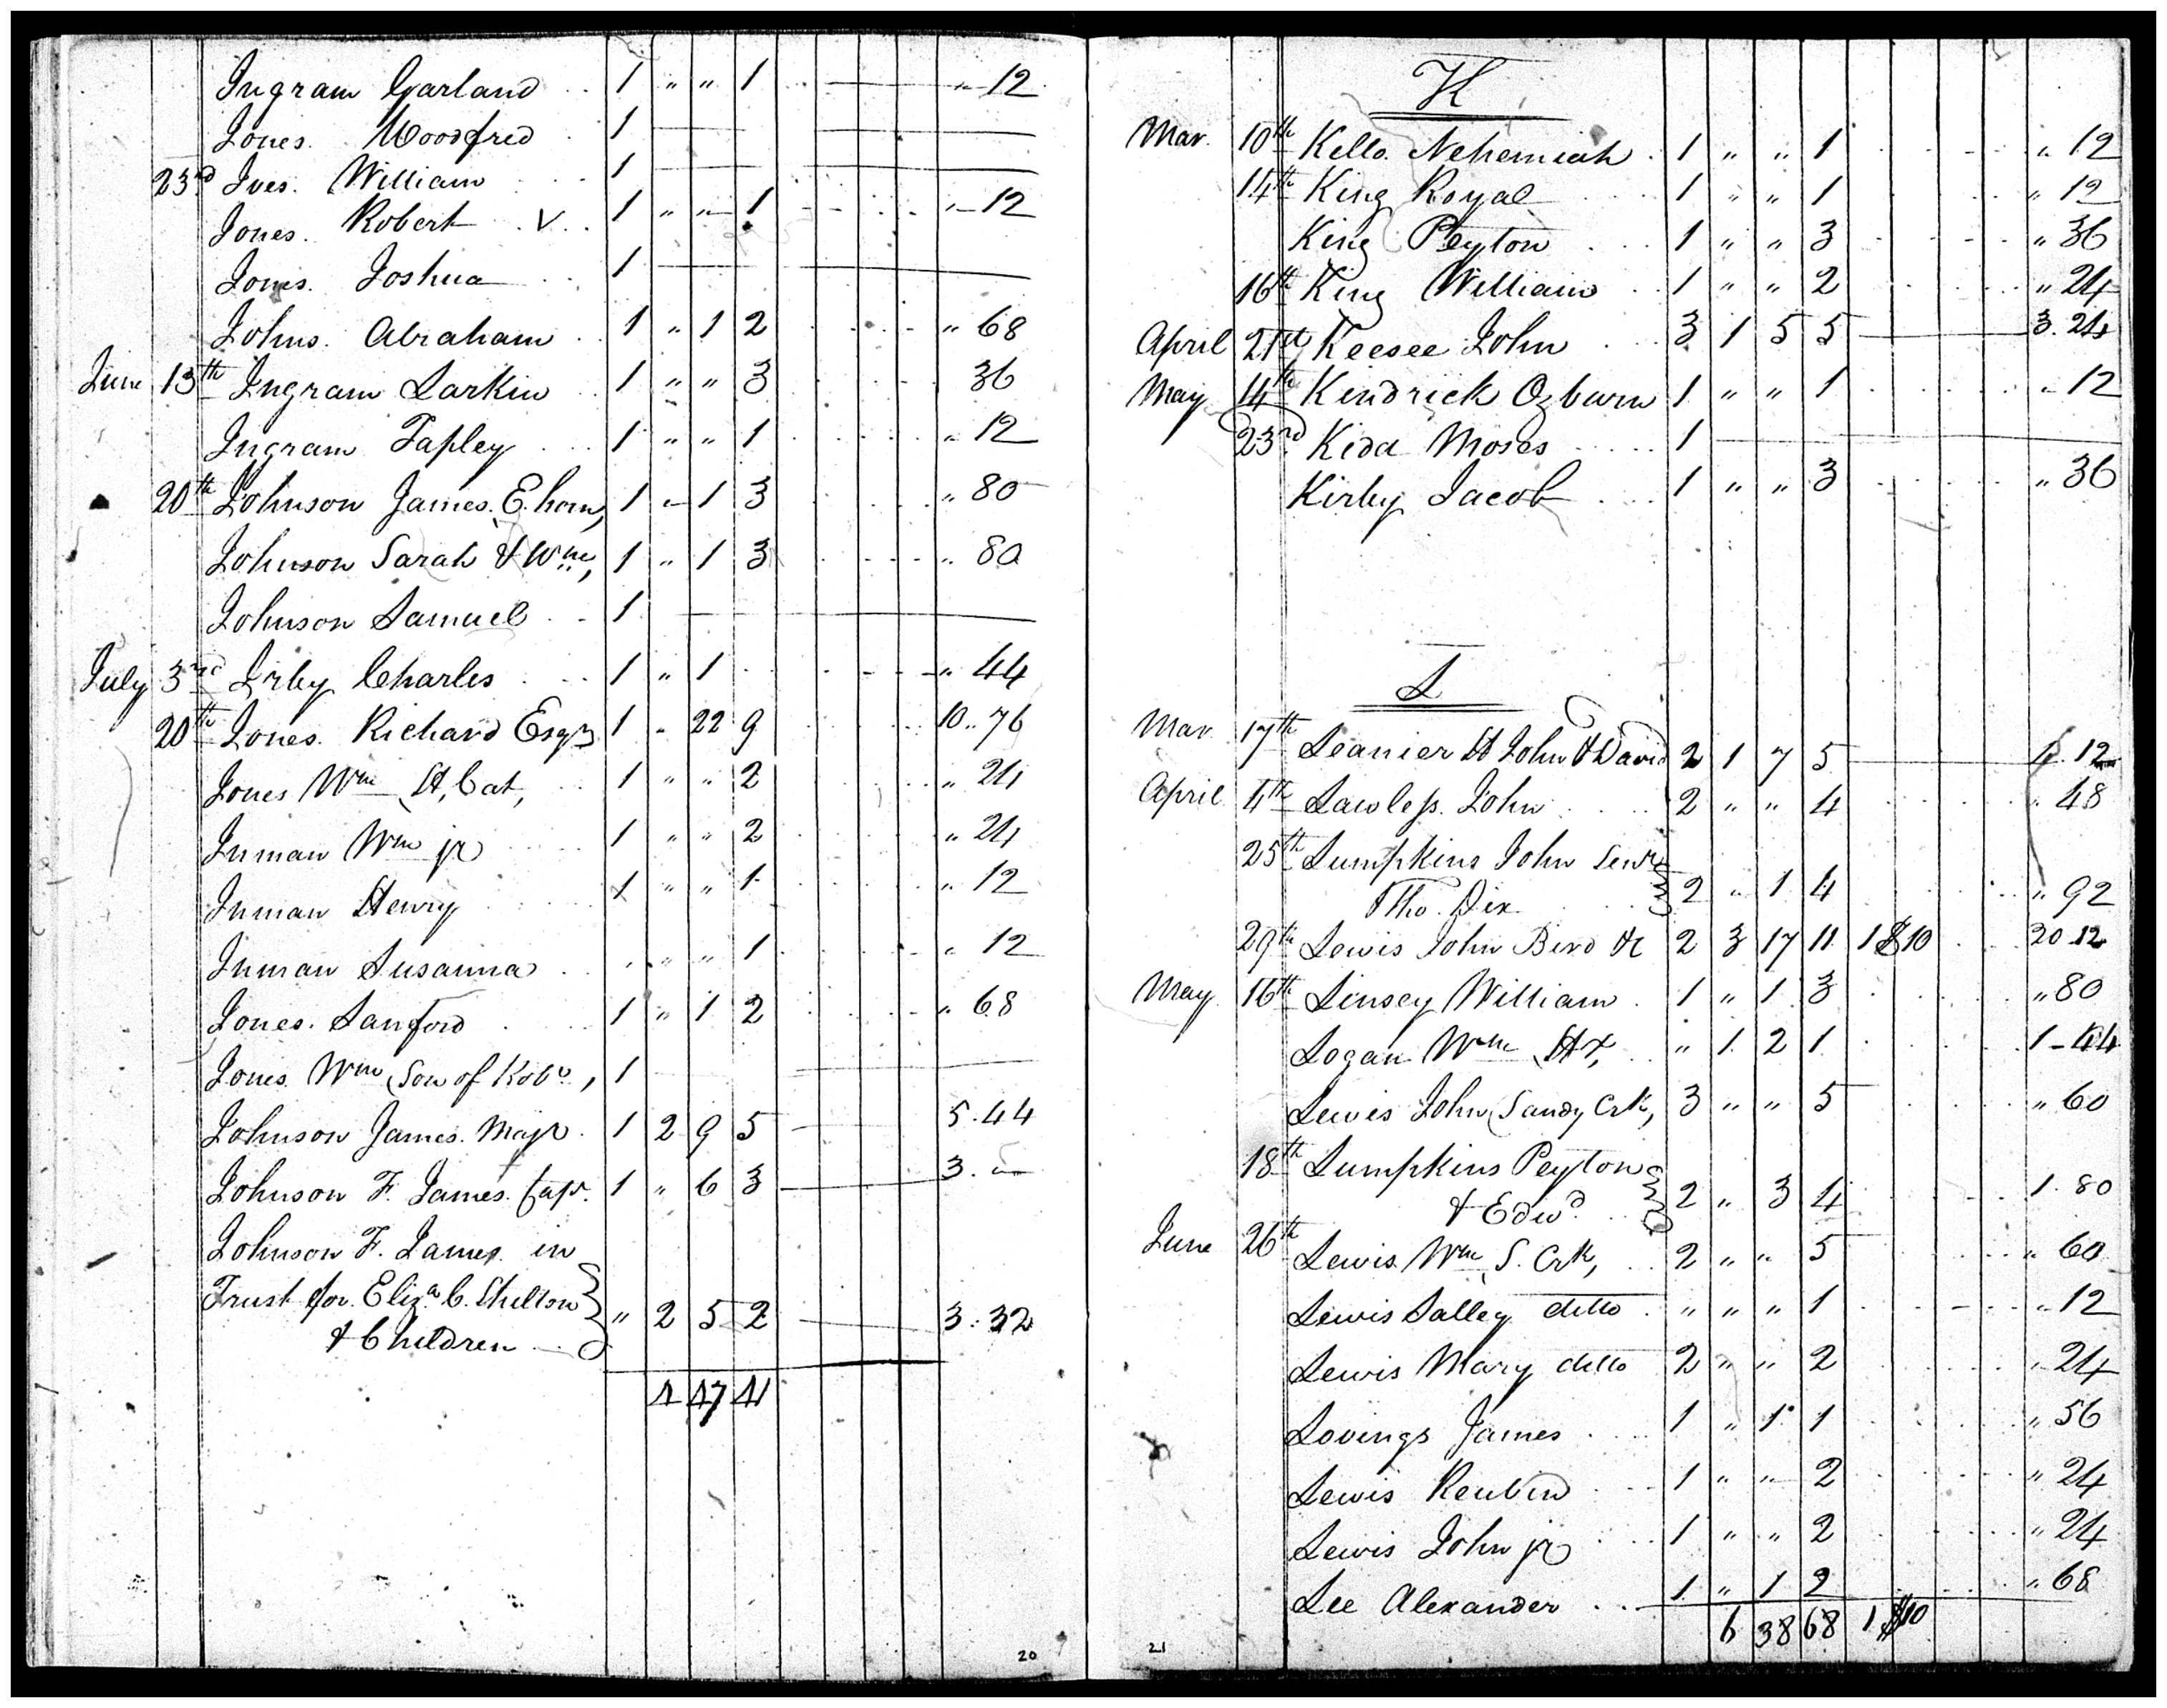 Ingram Garland 1 " " 1 " 12
Jones Woodfred 1
23rd Ives William 1
Jones Robert V. 1 " " 1 " 12
Jones Joshua 1
Johns Abraham 1 " 1 2 " 68
June 13th Ingram Larkin 1 " " 3 36
Ingram Tapley 1 " " 1 " 12
20th Johnson James E. horn, 1 " 1 3 " 80
Johnson Sarah & Wm, 1 " 1 3 " 80
Johnson Samuel 1
July 3rd Irby Charles 1 " 1 " 44
20th Jones Richard Esqr 1 " 22 9 10 .. 76
Jones Wm H, Cat, 1 " " 2 " 24
Inman Wm jr 1 " " 2 " 24
Inman Henry 1 " " 1 " 12
Inman Susanna . " " 1 " 12
Jones Sanford 1 " 1 2 " 68
Jones Wm (Son of Robt, 1
Johnson James Majr 1 2 9 5 5.44
Johnson F. James Cap. 1 " 6 3 3. "
Johnson F. James in
Trust for Eliza C. Shelton " 2 5 2 3.32
& Children
4 47 41
20
K
Mar. 10th Kello Nehemiah 1 " " 1 " 12
14th King Royal 1 " " 1 " 12
King Peyton 1 " " 3 " 36
16th King William 1 " " 2 " 24
April 21st Keesee John 3 1 5 5 3.24
May 14th Kendrick Ozburn 1 " " 1 " 12
23rd Kida Moses 1
Kirby Jacob 1 " " 3 " 36
L
Mar 17th Leanier H John & David 2 1 7 5 4.12
April 4th Lawless John 2 " " 4 " 48
25th Lumpkins John Senr
& Tho. Dix 2 " 1 4 " 92
29th Lewis John Bird &c 2 3 17 11 1 $10 20 12
May 16th Linsey William 1 " 1 3 " 80
Logan Wm Hx, " 1 2 1 1 - 44
Lewis John (Sandy Crk, 3 " " 5 " 60
18th Lumpkins Peyton
& Edwd 2 " 3 4 1.80
June 26th Lewis Wm S. Crk, 2 " " 5 " 60
Lewis Salley ditto " " " 1 " 12
Lewis Mary ditto 2 " " 2 " 24
Lovings James 1 " 1 1 " 56
Lewis Reubin 1 " " 2 " 24
Lewis John jr 1 " " 2 " 24
Lee Alexander 1 " 1 2 " 68
6 38 68 1 $10
21